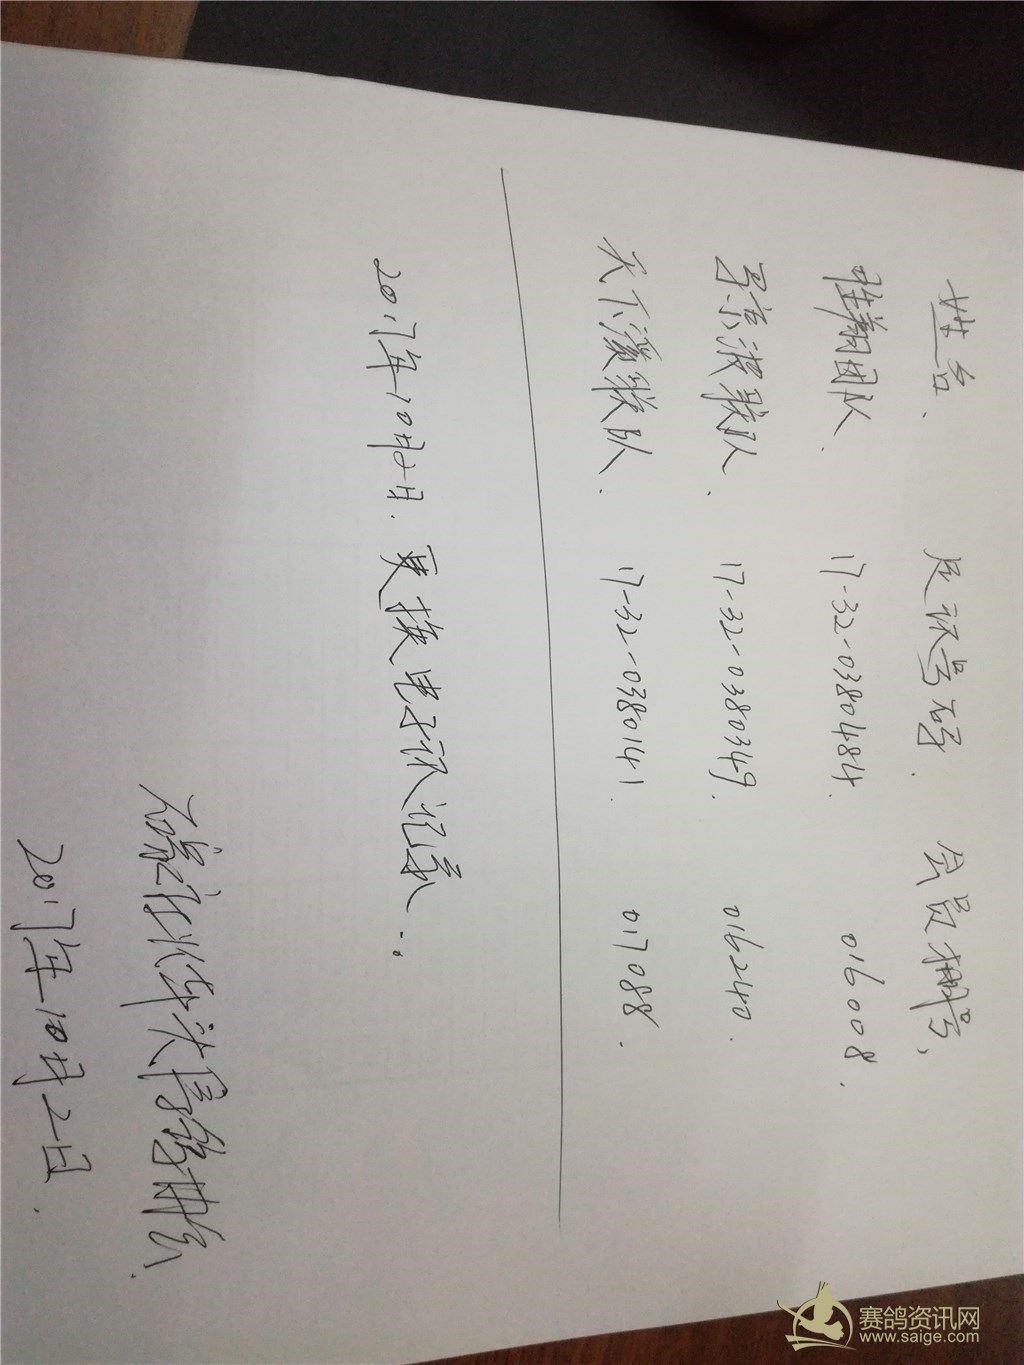 姓名、 足环号码. 会员棚号、
翔团队. 17-32-0380484. 016008.
京波联队. 17-32-0380349. 016240.
天下溪联队. 17-32-0380141. 017088.
2017年10月2日. 更换电子环记录.
2017年10月2日.
赛鸽资讯网
www.saige.com